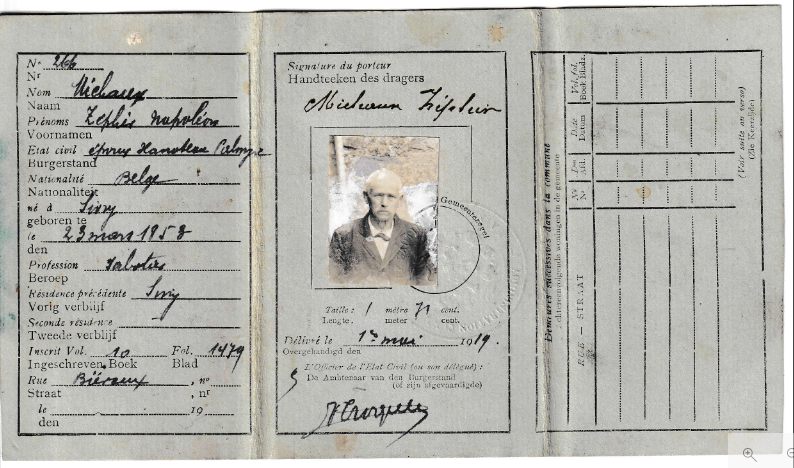 Nº 266
Nr
Nom Michaux
Naam
Prénoms Zephir Napoléon
Voornamen
Etat civil époux
Burgerstand
Nationalité Belge
Nationaliteit
né à Sivry
geboren te
le 23 mars 1958
den
Profession Sabotier
Beroep
Résidence précédente Sivry
Vorig verblijf
Seconde résidence
Tweede verblijf
Inscrit Vol. 10 Fol. 1479
Ingeschreven Boek Blad
Rue , nº
Straat , nr
le 19
den
Signature du porteur
Handteeken des dragers
Gemeentezegel
Taille : 1 mètre 71 cent.
Lengte. meter cent.
Délivré le 1er mai 1919.
Overgehandigd den
L'Officier de l'Etat Civil (ou son délégué) :
De Ambtenaar van den Burgerstand
(of zijn afgevaardigde)
Demeures successives dans la commune
Achtereenvolgende woningen in de gemeente
RUE — STRAAT
Nº
Nr
Afd.
Date
Datum
Vol. fol.
Boek Bladz.
(Voir suite au verso)
(Zie Keerzijde)